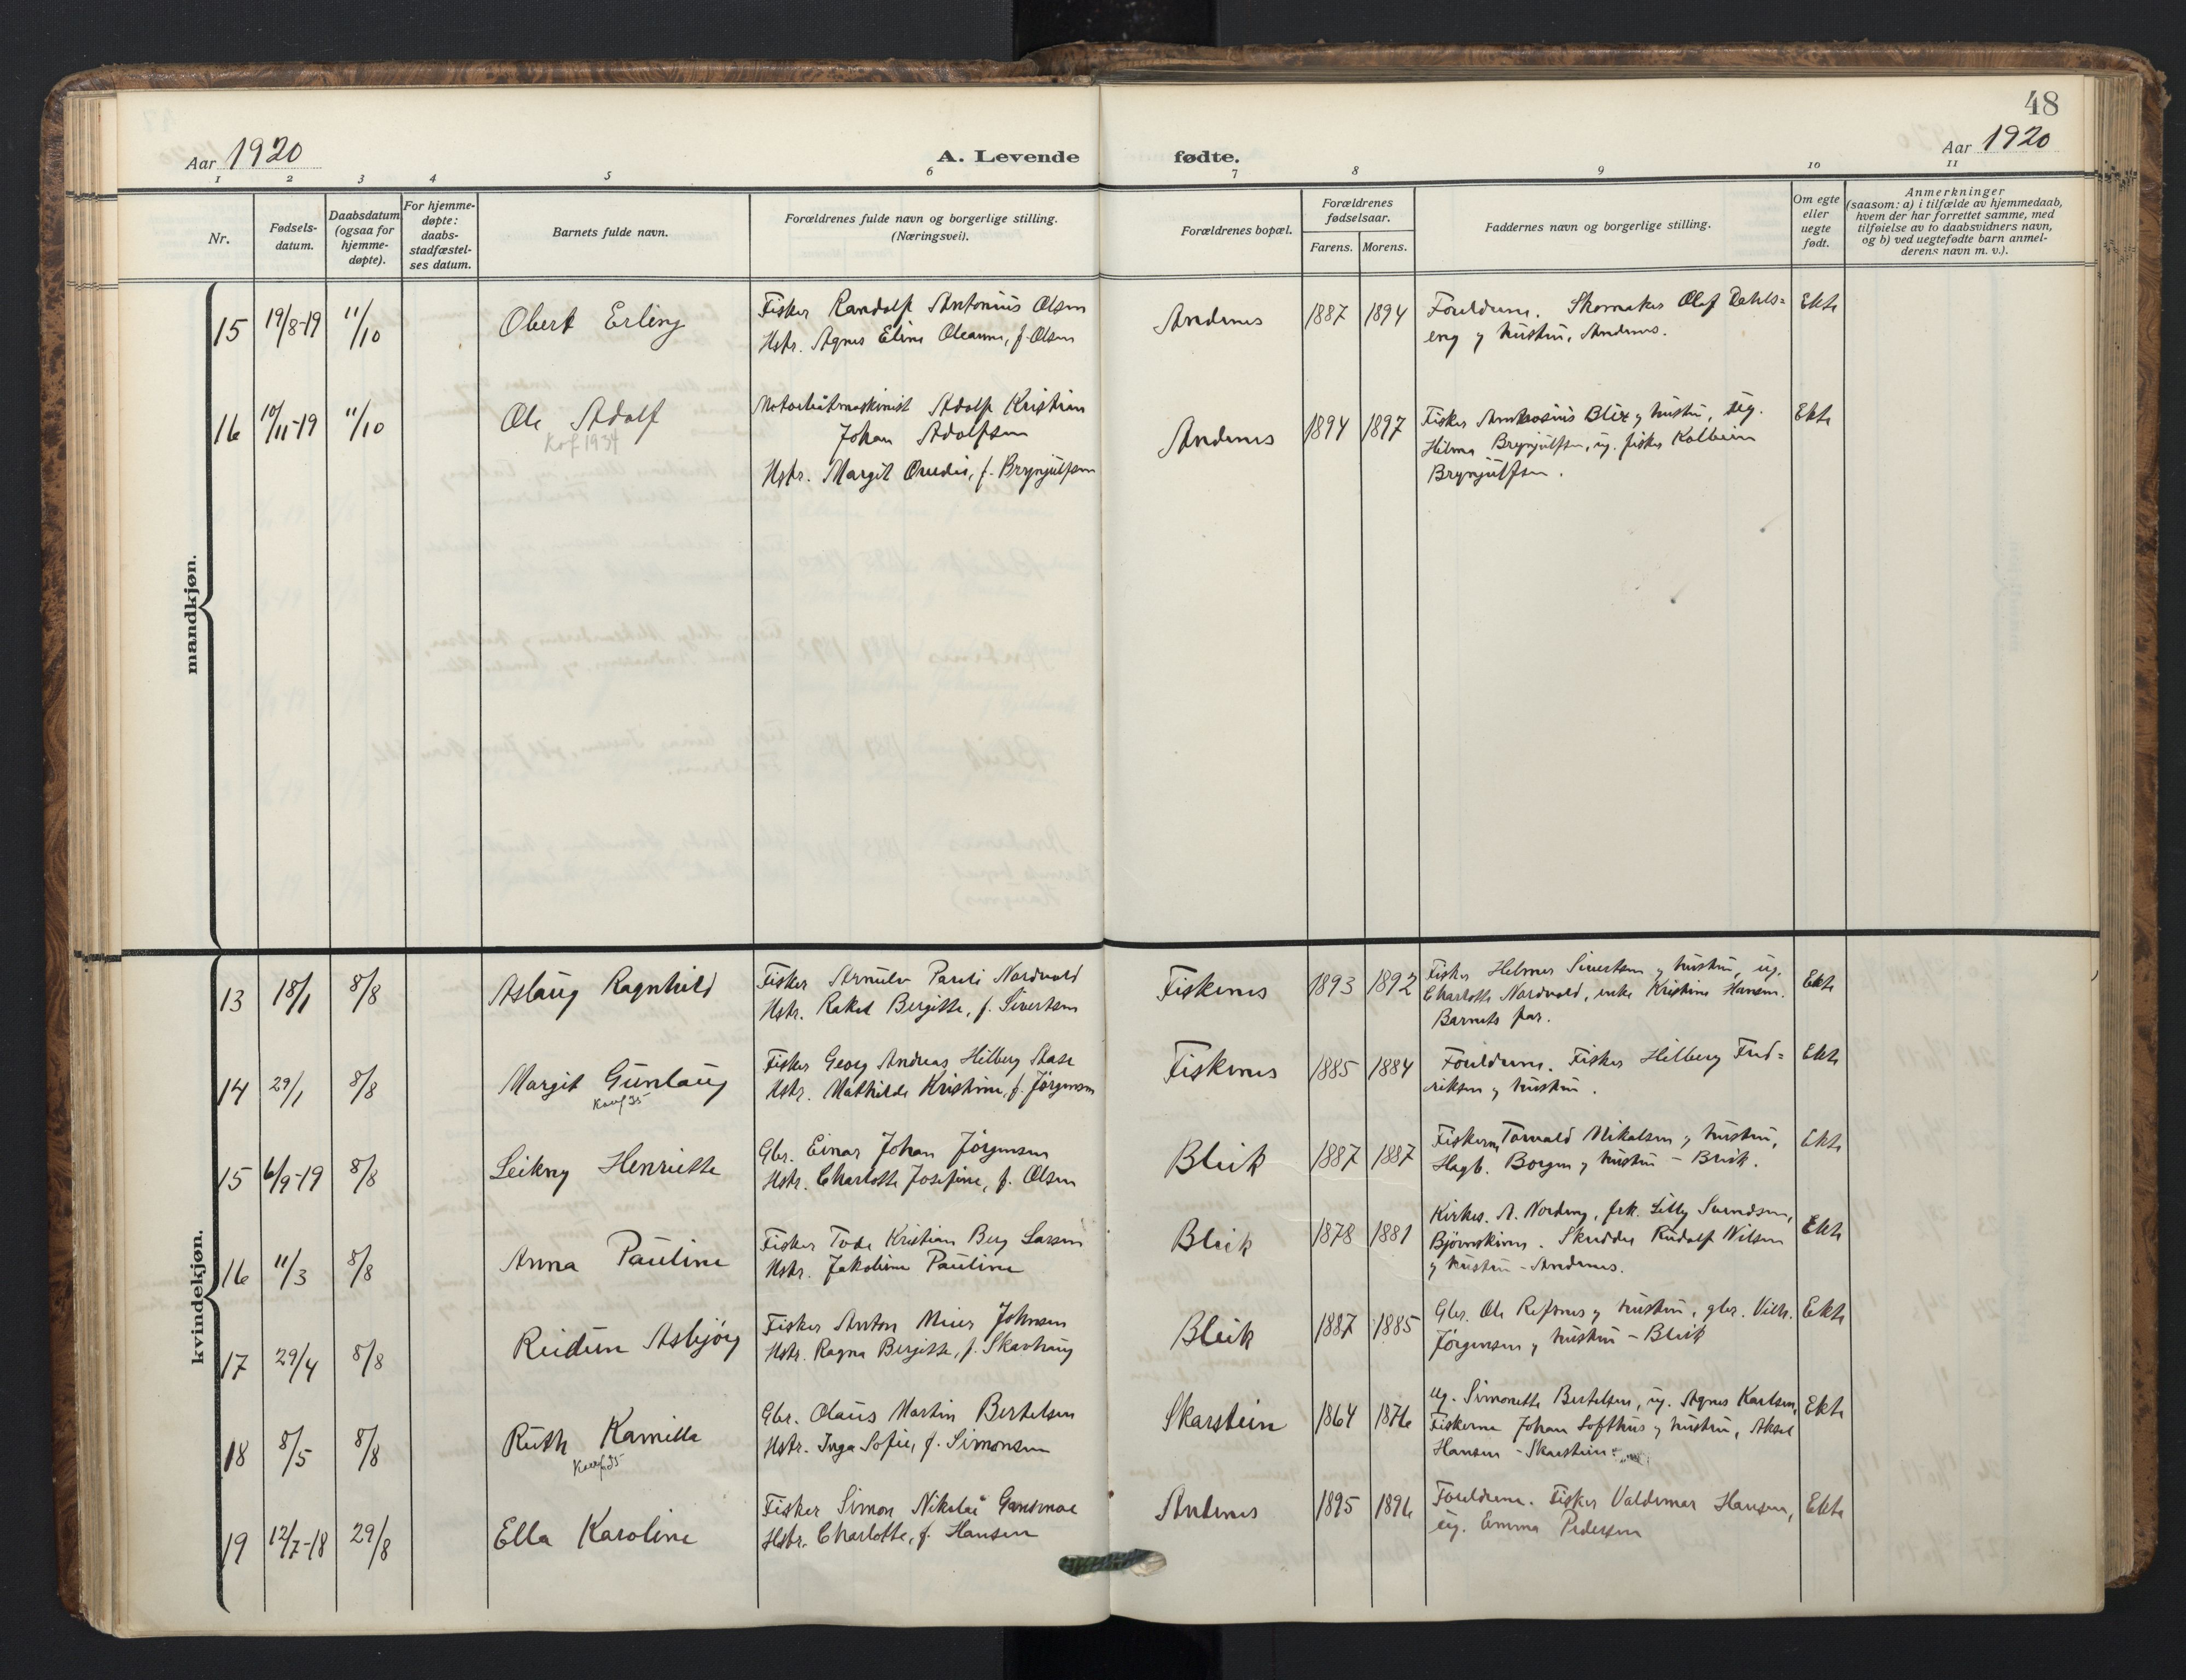 48
Aar 1920
A. Levende fødte.
Aar 1920
1 2 3 4 5 6 7 8 9 10 11
Nr.
Fødsels-
datum.
Daabsdatum
(ogsaa for
hjemme-
døpte).
For hjemme-
døpte:
daabs-
stadfæstel-
ses datum.
Barnets fulde navn.
Forældrenes fulde navn og borgerlige stilling.
(Næringsvei).
Forældrenes bopæl.
Forældrenes
fødselsaar.
Farens. Morens.
Faddernes navn og borgerlige stilling.
Om egte
eller
uegte
født.
Anmerkninger
(saasom: a) i tilfælde av hjemmedaab,
hvem der har forrettet samme, med
tilføielse av to daabsvidners navn,
og b) ved uegtefødte barn anmel-
derens navn m. v.).
mandkjøn.
15 19/8-19 11/10 Obert Erling
Fisker Randolf Antonius Olsen
Hstr. Agnes Eline Oleanna, f. Olsen
Andenes 1887 1894
Foreldrene. Skomaker Olaf Dahls=
eng og hustru, Andenes.
Ekte
16 10/11-19 11/10 Ole Adolf
Kof 1934
Motorbåtmaskinist Adolf Kristian
Johan Adolfsen
Hstr. Margit Ovedie, f. Brynjulfsen
Andenes 1894 1897
Fisker Ambrosius Blix og hustru, ug.
Hilma Brynjulfsen, ug. fisker Kolbein
Brynjulfsen.
Ekte
kvindekjøn.
13 18/1 8/8 Aslaug Ragnhild
Fisker Arnulv Pareli Nordvold
Hstr. Rakel Bergitte, f. Sivertsen
Fiskenes 1893 1892
Fisker Helmer Sivertsen og hustru, ug.
Charlotte Nordvold, enke Kristine Hansen.
Barnets far.
Ekte
14 29/1 8/8 Margit Gunlaug
Konf 35
Fisker Georg Andreas Hilberg Stase
Hstr. Mathilde Kristine, f. Jørgensen
Fiskenes 1885 1884
Foreldrene. Fisker Hilberg Fred=
riksen og hustru.
Ekte
15 6/9-19 8/8 Leikny Henriette
Gbr. Einar Johan Jørgensen
Hstr. Charlotte Josefine, f. Olsen
Bleik 1887 1887
Fiskerne Torvald Nikolsen og hustru,
Hagb. Borgen og hustru - Bleik.
Ekte
16 11/3 8/8 Anna Pauline
Fisker Tode Kristian Berg Larsen
Hstr. Jakobine Pauline
Bleik 1878 1881
Kirkes. A. Nordeng, frk. Lilly Svendsen,
Bjørnskinn. Skredder Rudolf Nilsen
og hustru - Andenes.
Ekte
17 29/4 8/8 Reidun Asbjørg
Fisker Anton Meier Johnsen
Hstr. Ragna Bergitte, f. Skavhaug
Bleik 1887 1885
Gbr. Ole Refsnes og hustru, gbr. Vilh.
Jørgensen og hustru - Bleik
Ekte
18 8/5 8/8 Ruth Kamilla
Konf 35
Gbr. Olaus Martin Bertelsen
Hstr. Inga Sofie, f. Simonsen
Skarstein 1864 1876
Ug. Simonette Bertelsen, ug. Agnes Karlsen,
Fiskerne Johan Lofthus og hustru, Aksel
Hansen - Skarstein.
Ekte
19 12/7-18 29/8 Ella Karoline
Fisker Simon Nikolai Gansmoe
Hstr. Charlotte, f. Hansen
Andenes 1895 1896
Foreldrene. Fisker Valdemar Hansen,
ug. Emma Pedersen
Ekte